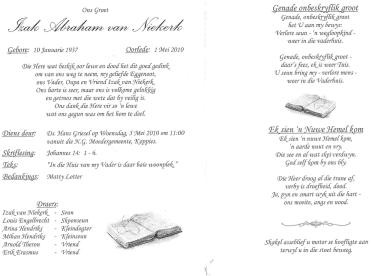 Ons Groet
Izak Abraham van Niekerk
Gebore: 10 Januarie 1937 Oorlede: 1 Mei 2010
Die Here wat beskik oor lewe en dood het dit goed gedink
om van ons weg te neem, my geliefde Eggenoot,
ons Vader, Oupa en Vriend Izak van Niekerk.
Ons harte is seer, maar ons is volkome gelukkig
en getroos met die wete dat hy veilig is.
Ons dank die Here vir 'n lewe
wat ons gegun was om hom te deel.
Diens deur: Ds. Hans Griesel op Woensdag, 5 Mei 2010 om 11:00
vanuit die N.G. Moedergemeente, Koppies.
Skriflesing: Johannes 14: 1 - 6.
Teks: "In die Huis van my Vader is daar baie woonplek."
Bedankings: Matty Letom
Draers:
Izak van Niekerk - Seun
Louis Engelbrecht - Skoonseun
Arina Hendriks - Kleindogter
Mihan Hendriks - Kleinseun
Arnold Theron - Vriend
Erik Erasmus - Vriend
Genade onbeskryflik groot
Genade, onbeskryflik groot
het U aan my bewys:
Verlore seun - 'n wegloopkind -
weer in die vaderhuis.
Genade, onbeskryflik groot -
daar's fees, ek is weer Tuis.
U seun bring my - verlore mens -
weer in die Vaderhuis.
Ek sien 'n Nuwe Hemel kom
Ek sien 'n nuwe hemel kom,
'n aarde wust en vry.
Dis see en al wat skei verdwyn.
God self kom by ons bly.
Die Heer droog al die trane af,
verby is droefheid, dood.
Ja, pyn en smart wyk uit die hart -
ons moeite, angs en nood.
Skakel asseblief u motor se hoofligte aan
terwyl u in die stoet beweeg.